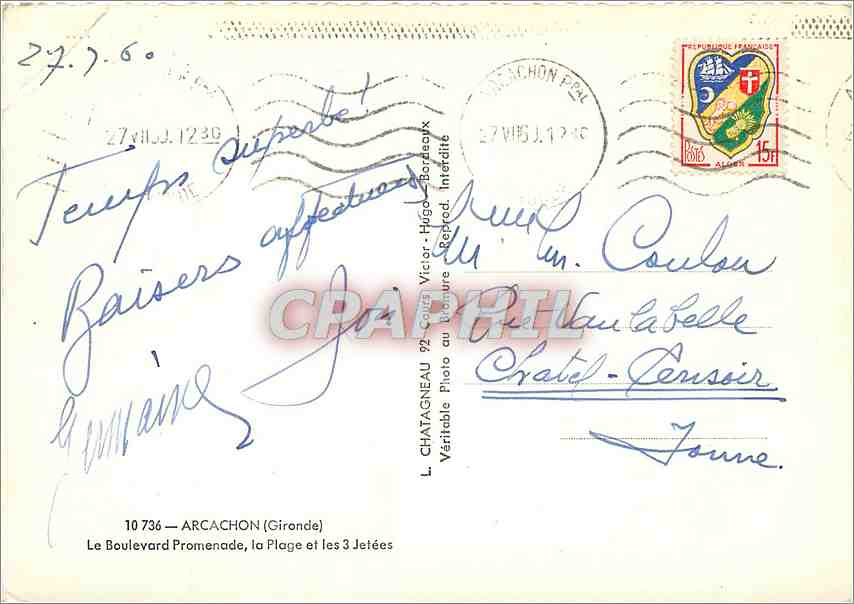 27.7.60
27 VII 60. 12 30
ARCACHON Ppal
27 VII 60. 12 30
REPUBLIQUE FRANÇAISE
POSTES
15F
ALGER
Temps superbe!
Baisers affectueux
Germaine
L. CHATAGNEAU 92 Cours Victor-Hugo - Bordeaux
Véritable Photo au Bromure - Reprod. Interdite
Coulon
Rue Vau la belle
Chatel-Censoir
Yonne.
10 736 — ARCACHON (Gironde)
Le Boulevard Promenade, la Plage et les 3 Jetées
CPAPHIL